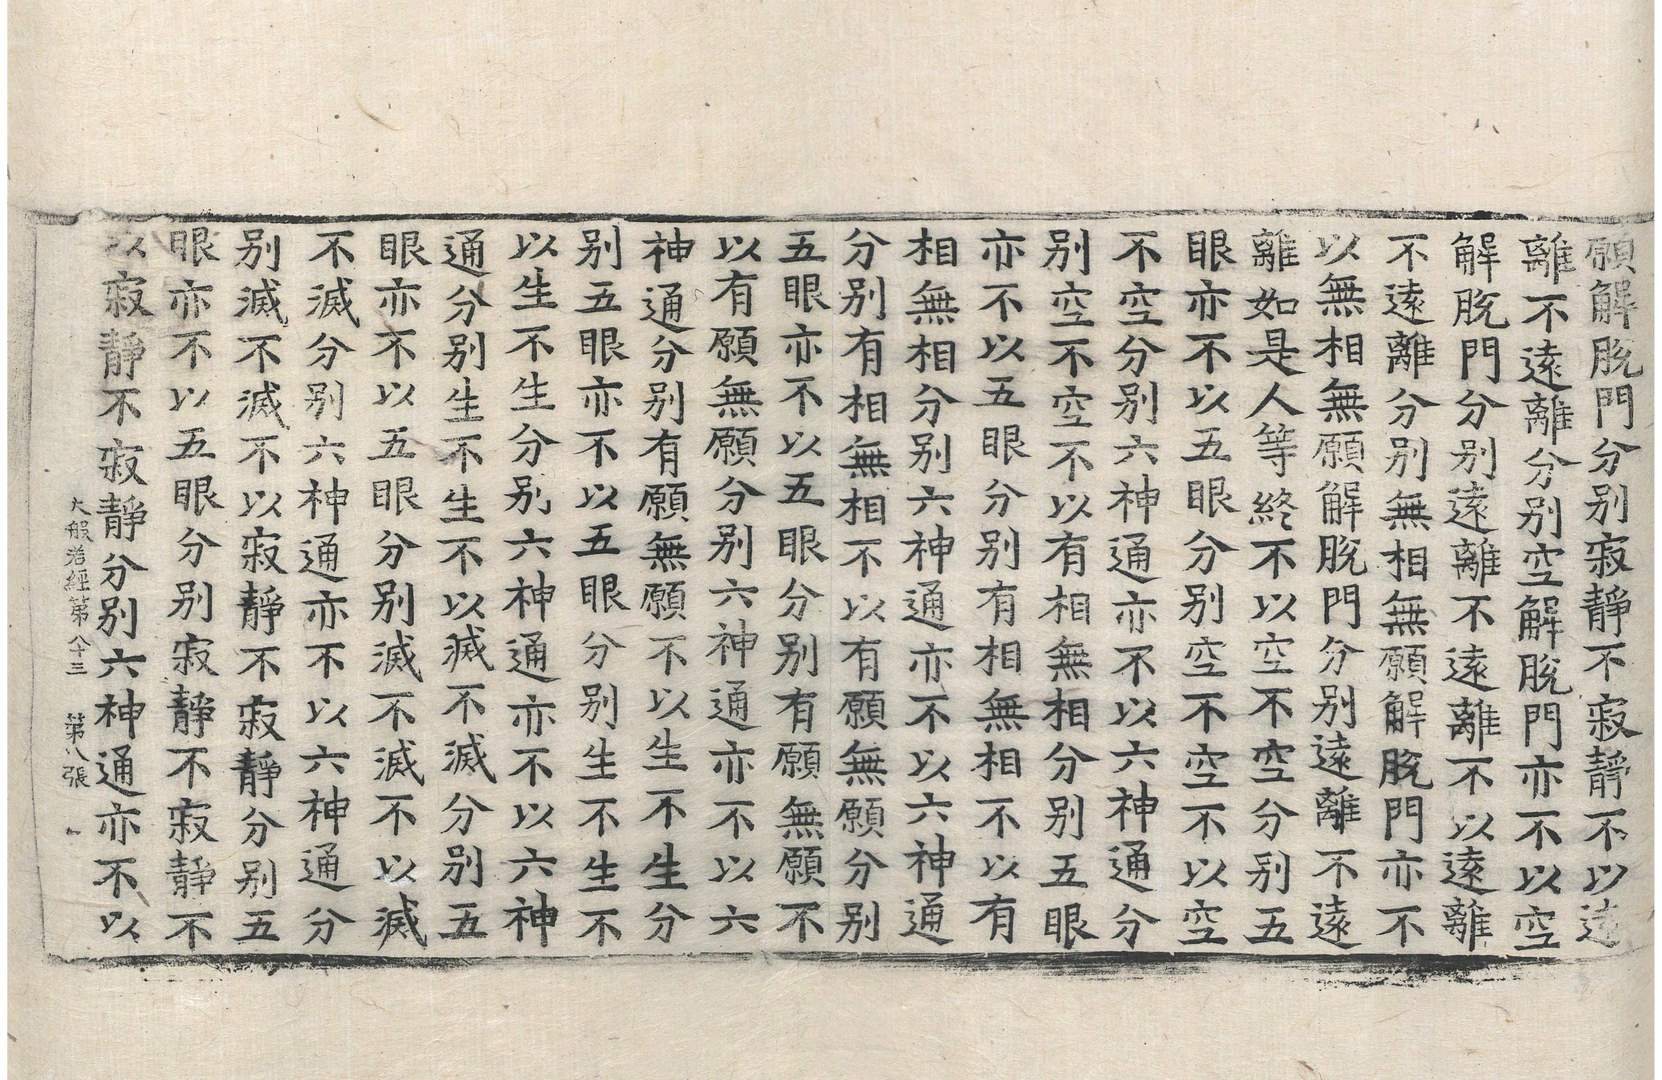 願解脫門分别寂靜不寂靜不以遠
離不遠離分别空解脫門亦不以空
解脫門分别遠離不遠離不以遠離
不遠離分别無相無願解脫門亦不
以無相無願解脫門分别遠離不遠
離如是人等終不以空不空分别五
眼亦不以五眼分别空不空不以空
不空分别六神通亦不以六神通分
别空不空不以有相無相分别五眼
亦不以五眼分别有相無相不以有
相無相分别六神通亦不以六神通
分别有相無相不以有願無願分别
五眼亦不以五眼分别有願無願不
以有願無願分别六神通亦不以六
神通分别有願無願不以生不生分
别五眼亦不以五眼分别生不生不
以生不生分别六神通亦不以六神
通分别生不生不以滅不滅分别五
眼亦不以五眼分别滅不滅不以滅
不滅分别六神通亦不以六神通分
别滅不滅不以寂靜不寂靜分别五
眼亦不以五眼分别寂靜不寂靜不
以寂靜不寂靜分别六神通亦不以
大般若經第八十三 第八張